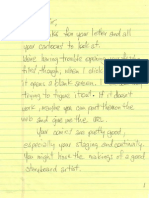 for your letter and all
your cartoons to look at.
We're having trouble opening
files though, when I click
it opens a blank screen. I
trying to figure it out. If it doesn't
work, maybe you can put them on the
web and give me the URL.
Your comics are pretty good,
especially your staging and continuity.
You might have the makings of a good
storyboard artist.
1